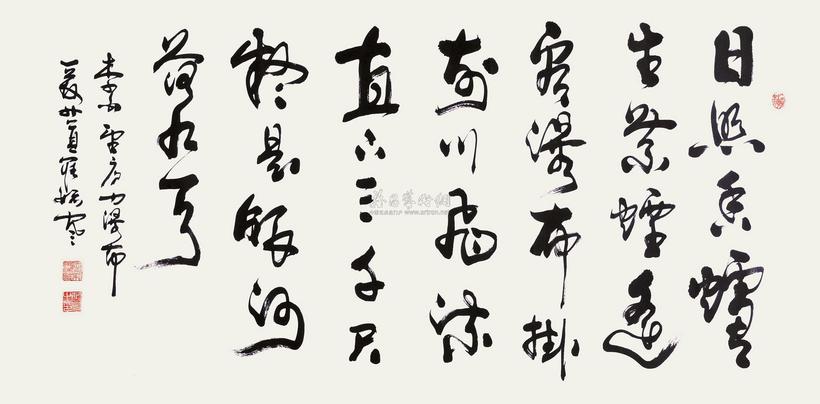 日照香爐
生紫煙遙
看瀑布掛
前川飛流
直下三千尺
疑是銀河
落九天
李白望廬山瀑布
雅昌藝術網
www.artron.net